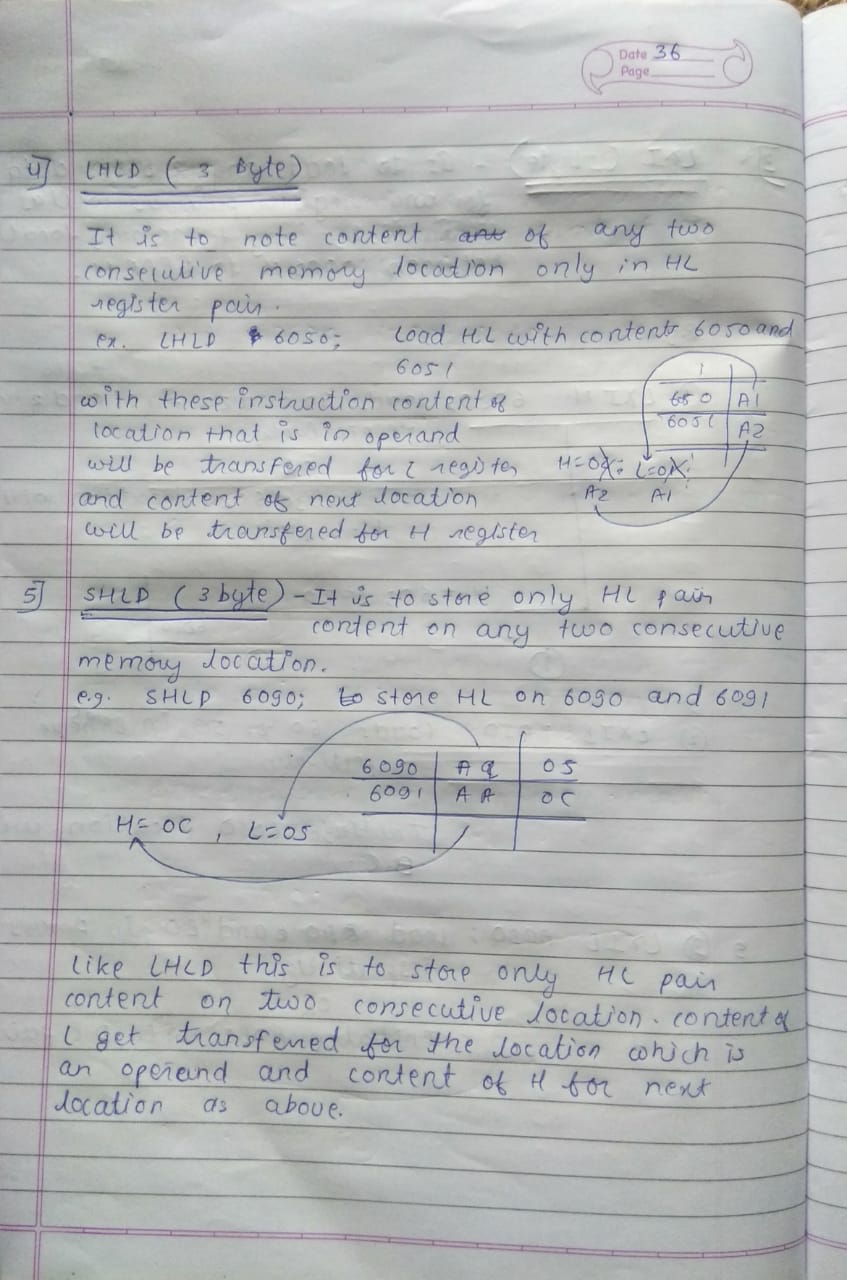 Date 36
Page
4] LHLD ( 3 Byte)
It is to note content of any two
consecutive memory location only in HL
register pair.
ex. LHLD 6050; Load HL with contents 6050 and
6051
with these instruction content of
location that is in operand
will be transfered for L register
and content of next location
will be transfered for H register
650 A1
6051 A2
H=0X; L=0X;
A2 A1
5] SHLD ( 3 byte) - It is to store only HL pair
content on any two consecutive
memory location.
e.g. SHLD 6090; to store HL on 6090 and 6091
6090 A9 05
6091 AA 0C
H= 0C , L=05
like LHLD this is to store only HL pair
content on two consecutive location. content of
L get transferred for the location which is
an operend and content of H for next
location as above.